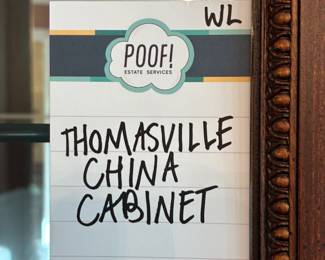 WL
POOF!
ESTATE SERVICES
THOMASVILLE
CHINA
CABINET